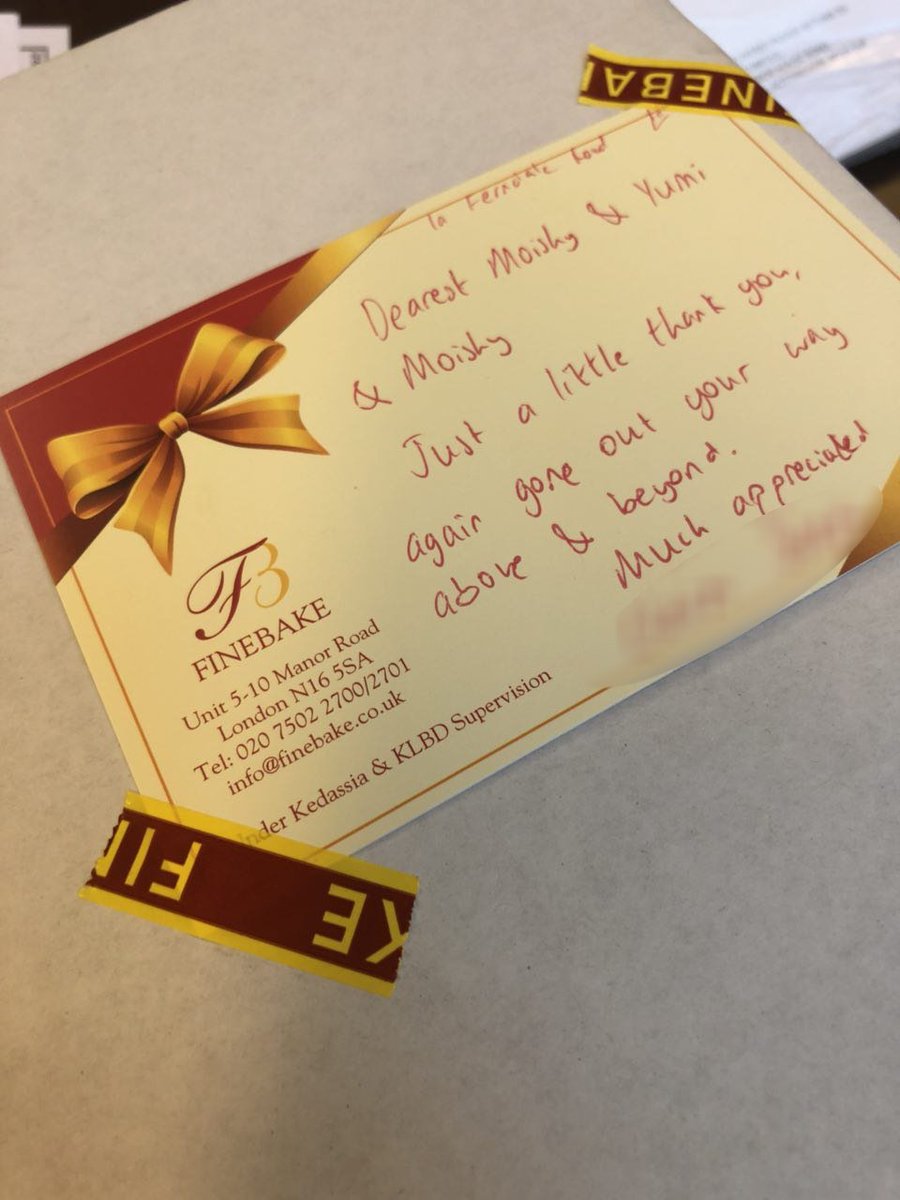 INEBA
1a Ferndale Road
Dearest Moishy & Yumi
& Moishy
Just a little thank you,
again gone out your way
above & beyond.
Much appreciated
FB
FINEBAKE
Unit 5-10 Manor Road
London N16 5SA
Tel: 020 7502 2700/2701
info@finebake.co.uk
nder Kedassia & KLBD Supervision
FI
KE